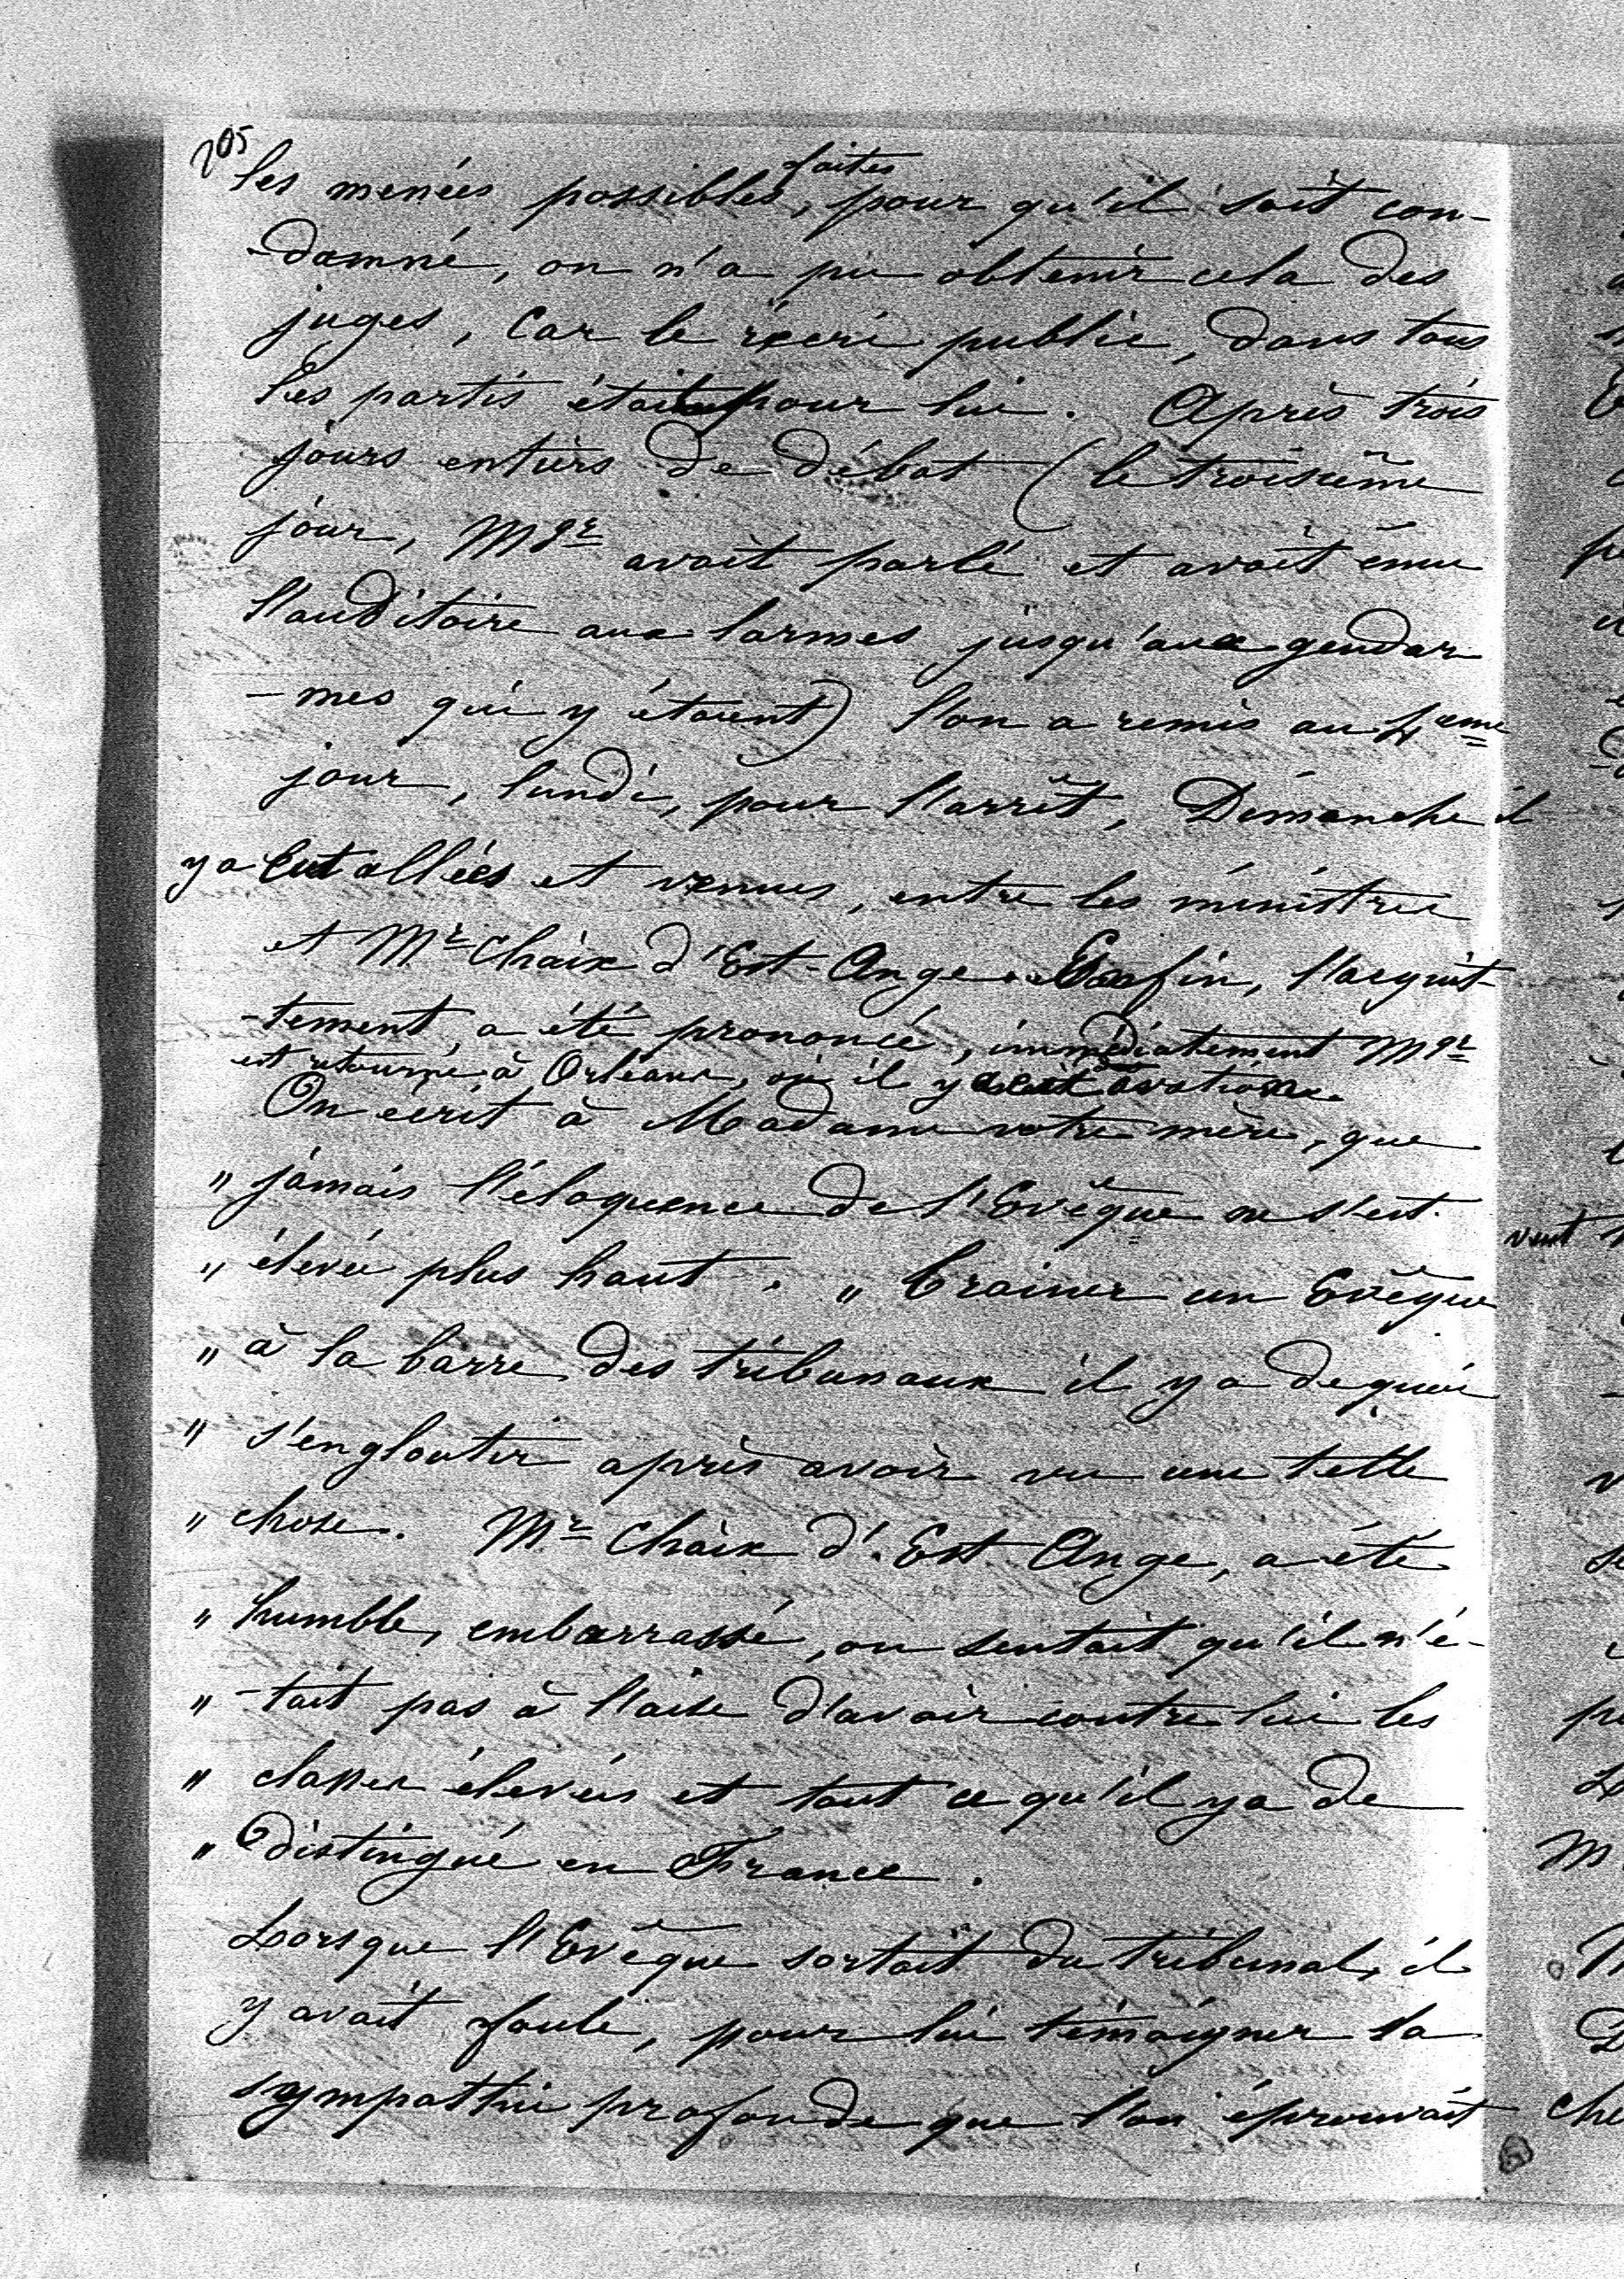 205
faites
les menées possibles, pour qu'il soit con-
-damné, on n'a pu obtenir cela des
juges, Car le récri public, dans tous
les partis était pour lui. Après trois
jours entiers de débat (le troisième
jour, Mgr avait parlé et avait ému
l'auditoire aux larmes jusqu'aux gendar
-mes qui y étaient) l'on a remis au 4eme
jour, lundi, pour l'arrêt, Dimanche il
y a eut allées et venues, entre les ministres
et Mr Chaix d'Est-Ange. Enfin, l'acquit-
-tement a été prononcé, immédiatement Mgr
est retourné à Orléans, où il y a eut ovation.
On écrit à Madame votre mère, que
" jamais l'éloquence de l'Evêque ne s'est
" élevée plus haut. " Trainer un Evêque
" à la barre des tribunaux il y a de quoi
" s'engloutir après avoir vu une telle
" chose. Mr Chaix d'Est Ange, a été
" humble, embarrassé, on sentait qu'il n'é-
" -tait pas à l'aise d'avoir contre lui les
" classes élevées et tout ce qu'il y a de
" distingué en France.
Lorsque l'Evêque sortait du tribunal, il
y avait foule, pour lui témoigner la
sympathie profonde que l'on éprouvait